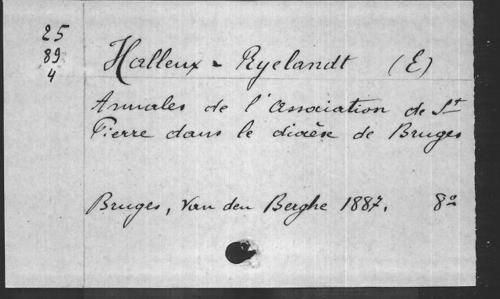 25
89
4
Halleux - Ryelandt (E)
Annales de l'Association de St
Pierre dans le diocèse de Bruges
Bruges, Van den Berghe 1887. 8o